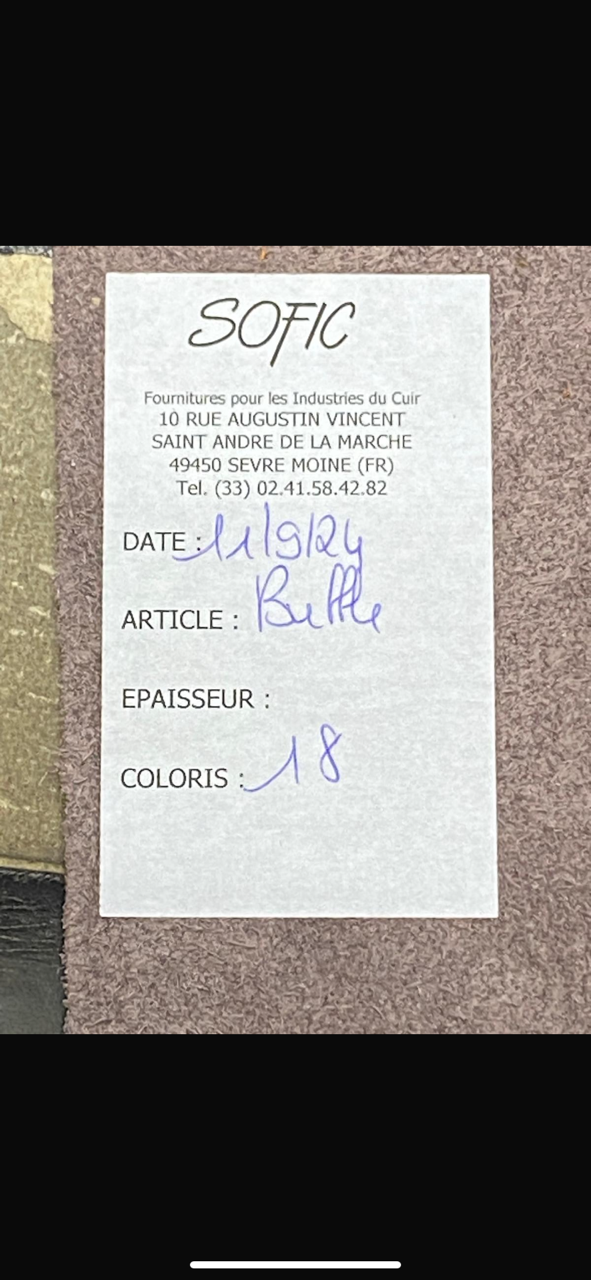 SOFIC
Fournitures pour les Industries du Cuir
10 RUE AUGUSTIN VINCENT
SAINT ANDRE DE LA MARCHE
49450 SEVRE MOINE (FR)
Tel. (33) 02.41.58.42.82
DATE : 11/9/24
ARTICLE : Buffle
EPAISSEUR :
COLORIS : 18